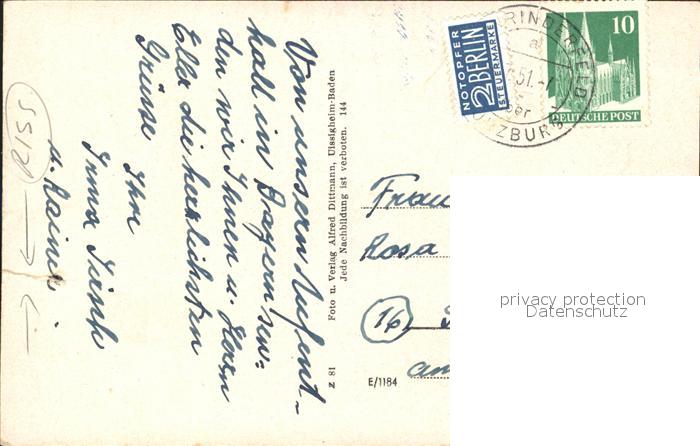 Von unserm Aufent-
halt in Bayern sen-
den wir Ihnen u. Herrn
Ella die herzlichsten
Grüsse
Ihre
Irma
u. Rainer.
Foto u. Verlag Alfred Dittmann, Uissigheim-Baden
Jede Nachbildung ist verboten. 144
Z 81
E/1184
NOTOPFER
2 BERLIN
STEUERMARKE
RINDERFELD
a
51.-
ZBURG
10
DEUTSCHE POST
Frau
Rosa
(16)
am
privacy protection
Datenschutz